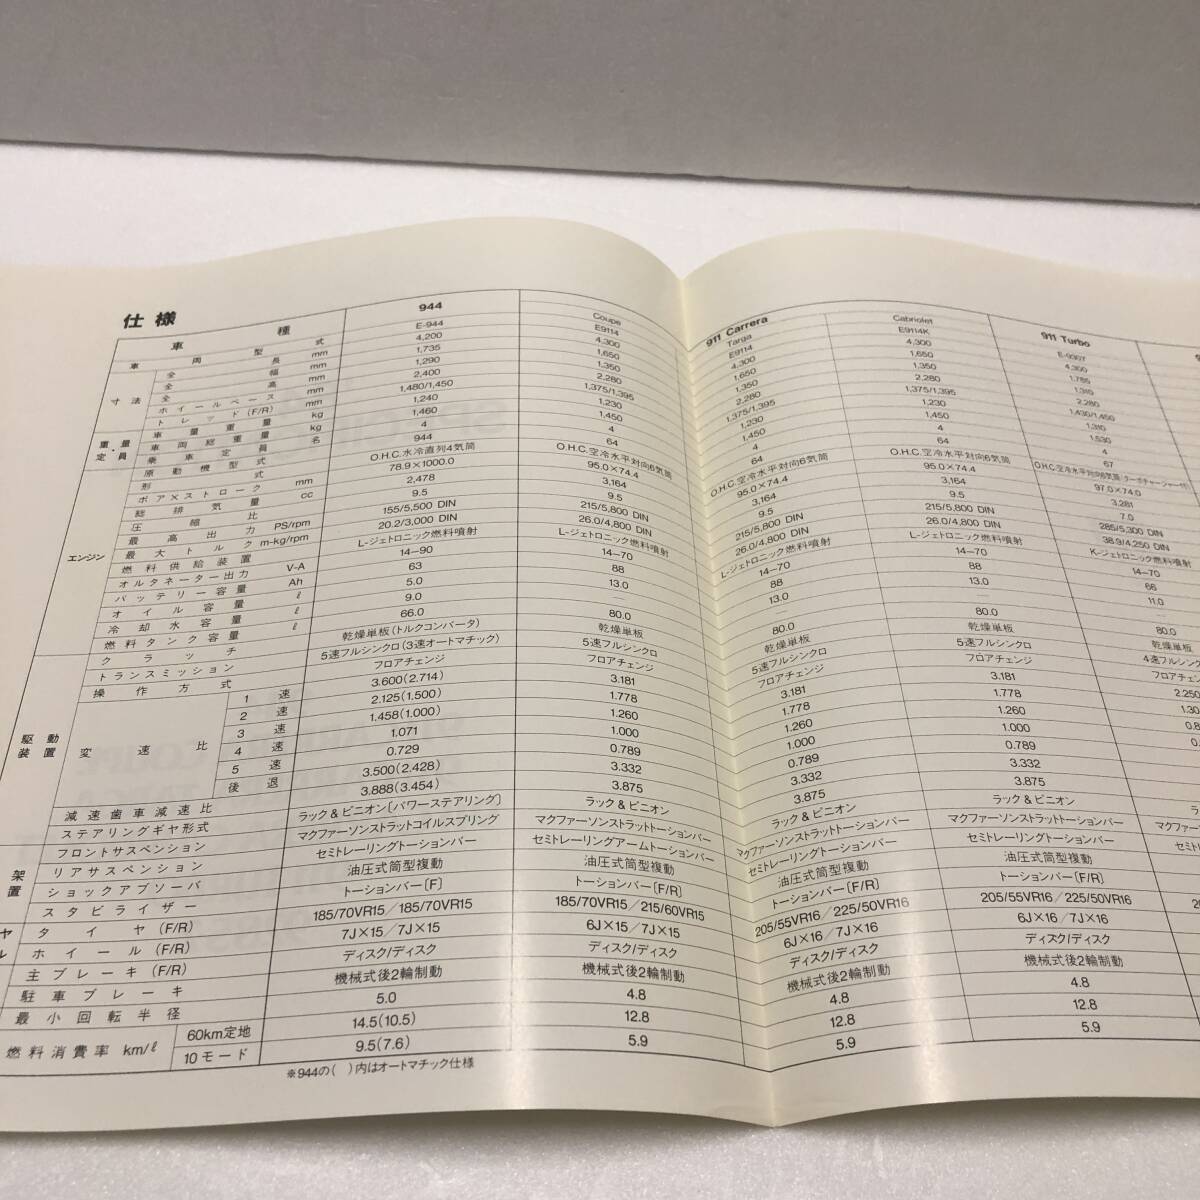 仕様
車種 944 911 Carrera 911 Turbo
Coupe Targa Cabriolet
車両型式 E-944 E9114 E9114 E9114K E-930T
寸法 全長 mm 4,200 4,300 4,300 4,300 4,300
全幅 mm 1,735 1,650 1,650 1,650 1,785
全高 mm 1,290 1,350 1,350 1,350 1,310
ホイールベース mm 2,400 2,280 2,280 2,280 2,280
トレッド(F/R) mm 1,480/1,450 1,375/1,395 1,375/1,395 1,375/1,395 1,430/1,450
重量・定員 車両重量 kg 1,240 1,230 1,230 1,230 1,310
車両総重量 kg 1,460 1,450 1,450 1,450 1,530
乗車定員 名 4 4 4 4 4
エンジン 原動機型式 944 64 64 64 67
形式 O.H.C.水冷直列4気筒 O.H.C.空冷水平対向6気筒 O.H.C.空冷水平対向6気筒 O.H.C.空冷水平対向6気筒 O.H.C.空冷水平対向6気筒(ターボチャージャー付)
ボア×ストローク mm 78.9×1000.0 95.0×74.4 95.0×74.4 95.0×74.4 97.0×74.0
総排気量 cc 2,478 3,164 3,164 3,164 3,281
圧縮比 9.5 9.5 9.5 9.5 7.0
最高出力 PS/rpm 155/5,500 DIN 215/5,800 DIN 215/5,800 DIN 215/5,800 DIN 285/5,300 DIN
最大トルク m-kg/rpm 20.2/3,000 DIN 26.0/4,800 DIN 26.0/4,800 DIN 26.0/4,800 DIN 38.9/4,250 DIN
燃料供給装置 L-ジェトロニック燃料噴射 L-ジェトロニック燃料噴射 L-ジェトロニック燃料噴射 L-ジェトロニック燃料噴射 K-ジェトロニック燃料噴射
オルタネーター出力 V-A 14-90 14-70 14-70 14-70 14-70
バッテリー容量 Ah 63 88 88 88 66
オイル容量 ℓ 5.0 13.0 13.0 13.0 11.0
冷却水容量 ℓ 9.0 — — —
燃料タンク容量 ℓ 66.0 80.0 80.0 80.0 80.0
駆動装置 クラッチ 乾燥単板(トルクコンバータ) 乾燥単板 乾燥単板 乾燥単板 乾燥単板
トランスミッション 5速フルシンクロ(3速オートマチック) 5速フルシンクロ 5速フルシンクロ 5速フルシンクロ 4速フルシン
操作方式 フロアチェンジ フロアチェンジ フロアチェンジ フロアチェンジ フロアチェン
変速比 1速 3.600(2.714) 3.181 3.181 3.181 2.250
2速 2.125(1.500) 1.778 1.778 1.778 1.30
3速 1.458(1.000) 1.260 1.260 1.260 0.8
4速 1.071 1.000 1.000 1.000 0.
5速 0.729 0.789 0.789 0.789
後退 3.500(2.428) 3.332 3.332 3.332
減速歯車減速比 3.888(3.454) 3.875 3.875 3.875
ステアリングギヤ形式 ラック&ピニオン〔パワーステアリング〕 ラック&ピニオン ラック&ピニオン ラック&ピニオン ラッ
架 置 フロントサスペンション マクファーソンストラットコイルスプリング マクファーソンストラットトーションバー マクファーソンストラットトーションバー マクファーソンストラットトーションバー マクファーソ
リアサスペンション セミトレーリングトーションバー セミトレーリングアームトーションバー セミトレーリングトーションバー セミトレーリングトーションバー セミトレ
ショックアブソーバ 油圧式筒型複動 油圧式筒型複動 油圧式筒型複動 油圧式筒型複動
スタビライザー トーションバー〔F〕 トーションバー〔F/R〕 トーションバー〔F/R〕 トーションバー〔F/R〕
ヤ タイヤ(F/R) 185/70VR15/185/70VR15 185/70VR15/215/60VR15 205/55VR16/225/50VR16 205/55VR16/225/50VR16
ル ホイール(F/R) 7J×15/7J×15 6J×15/7J×15 6J×16/7J×16 6J×16/7J×16
主ブレーキ(F/R) ディスク/ディスク ディスク/ディスク ディスク/ディスク ディスク/ディスク
駐車ブレーキ 機械式後2輪制動 機械式後2輪制動 機械式後2輪制動 機械式後2輪制動
最小回転半径 5.0 4.8 4.8 4.8
燃料消費率 km/ℓ 60km定地 14.5(10.5) 12.8 12.8 12.8
10モード 9.5(7.6) 5.9 5.9 5.9
※944の( )内はオートマチック仕様